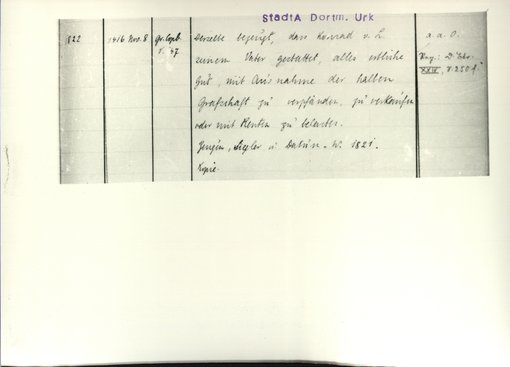 StadtA Dortm. Urk
1822 1416 Nov. 8 Gr. Copb. Derselbe bezeugt, dass Konrad v. L. a. a. O.
S. 47 seinem Vater gestattet, alles erbliche
Gut, mit Ausnahme der halben
Grafschaft zu verpfänden, zu verkaufen
oder mit Renten zu belasten.
Zeugen, Siegler u. Datum w. 1821.
Kopie.